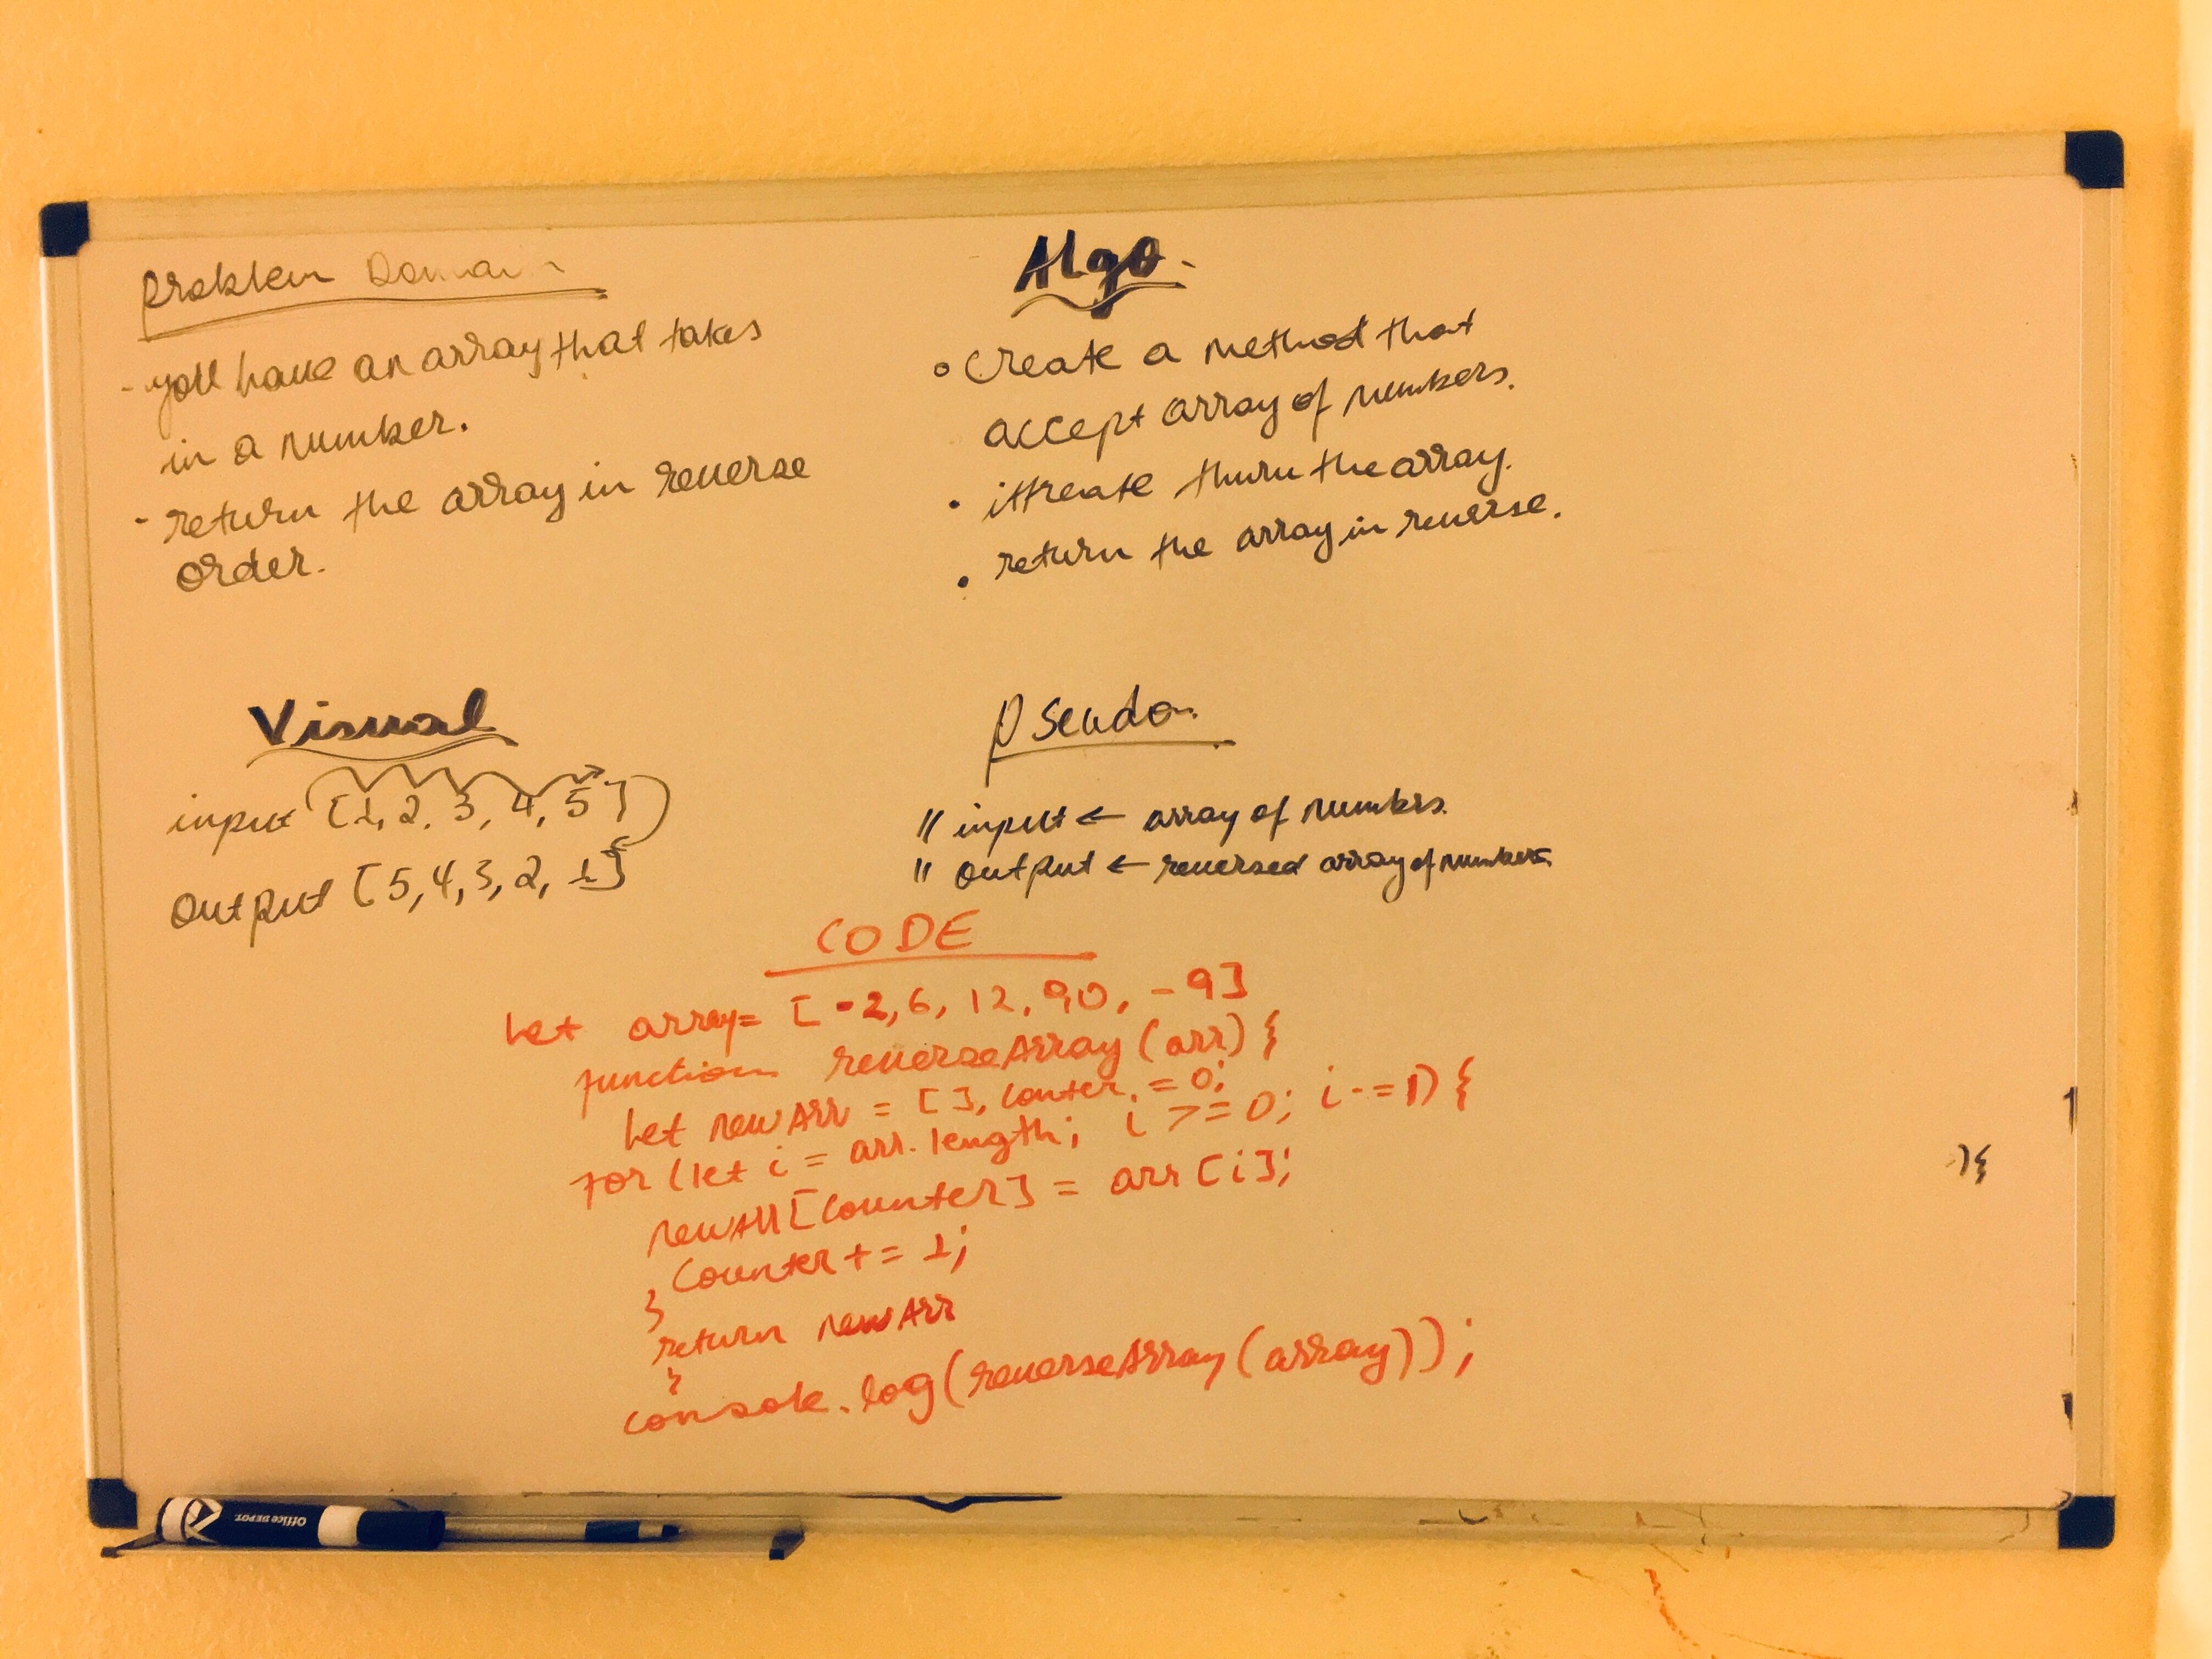 Problem Domain
- you have an array that takes
in a number.
- return the array in reverse
order.
Algo.
• create a method that
accept array of numbers.
• ittreate thuru the array.
• return the array in reverse.
Visual
input [1, 2, 3, 4, 5]
output [5, 4, 3, 2, 1]
Pseudo.
// input ← array of numbers.
// output ← reversed array of numbers.
CODE
Let array= [-2, 6, 12, 90, -9]
function reverseArray (arr) {
Let newArr = [], conter = 0;
for (let i = arr.length; i >= 0; i -= 1) {
newArr [Counter] = arr [i];
Counter += 1;
}
return newArr
}
console.log(reverseArray(array));
) {
Office DEPOT.